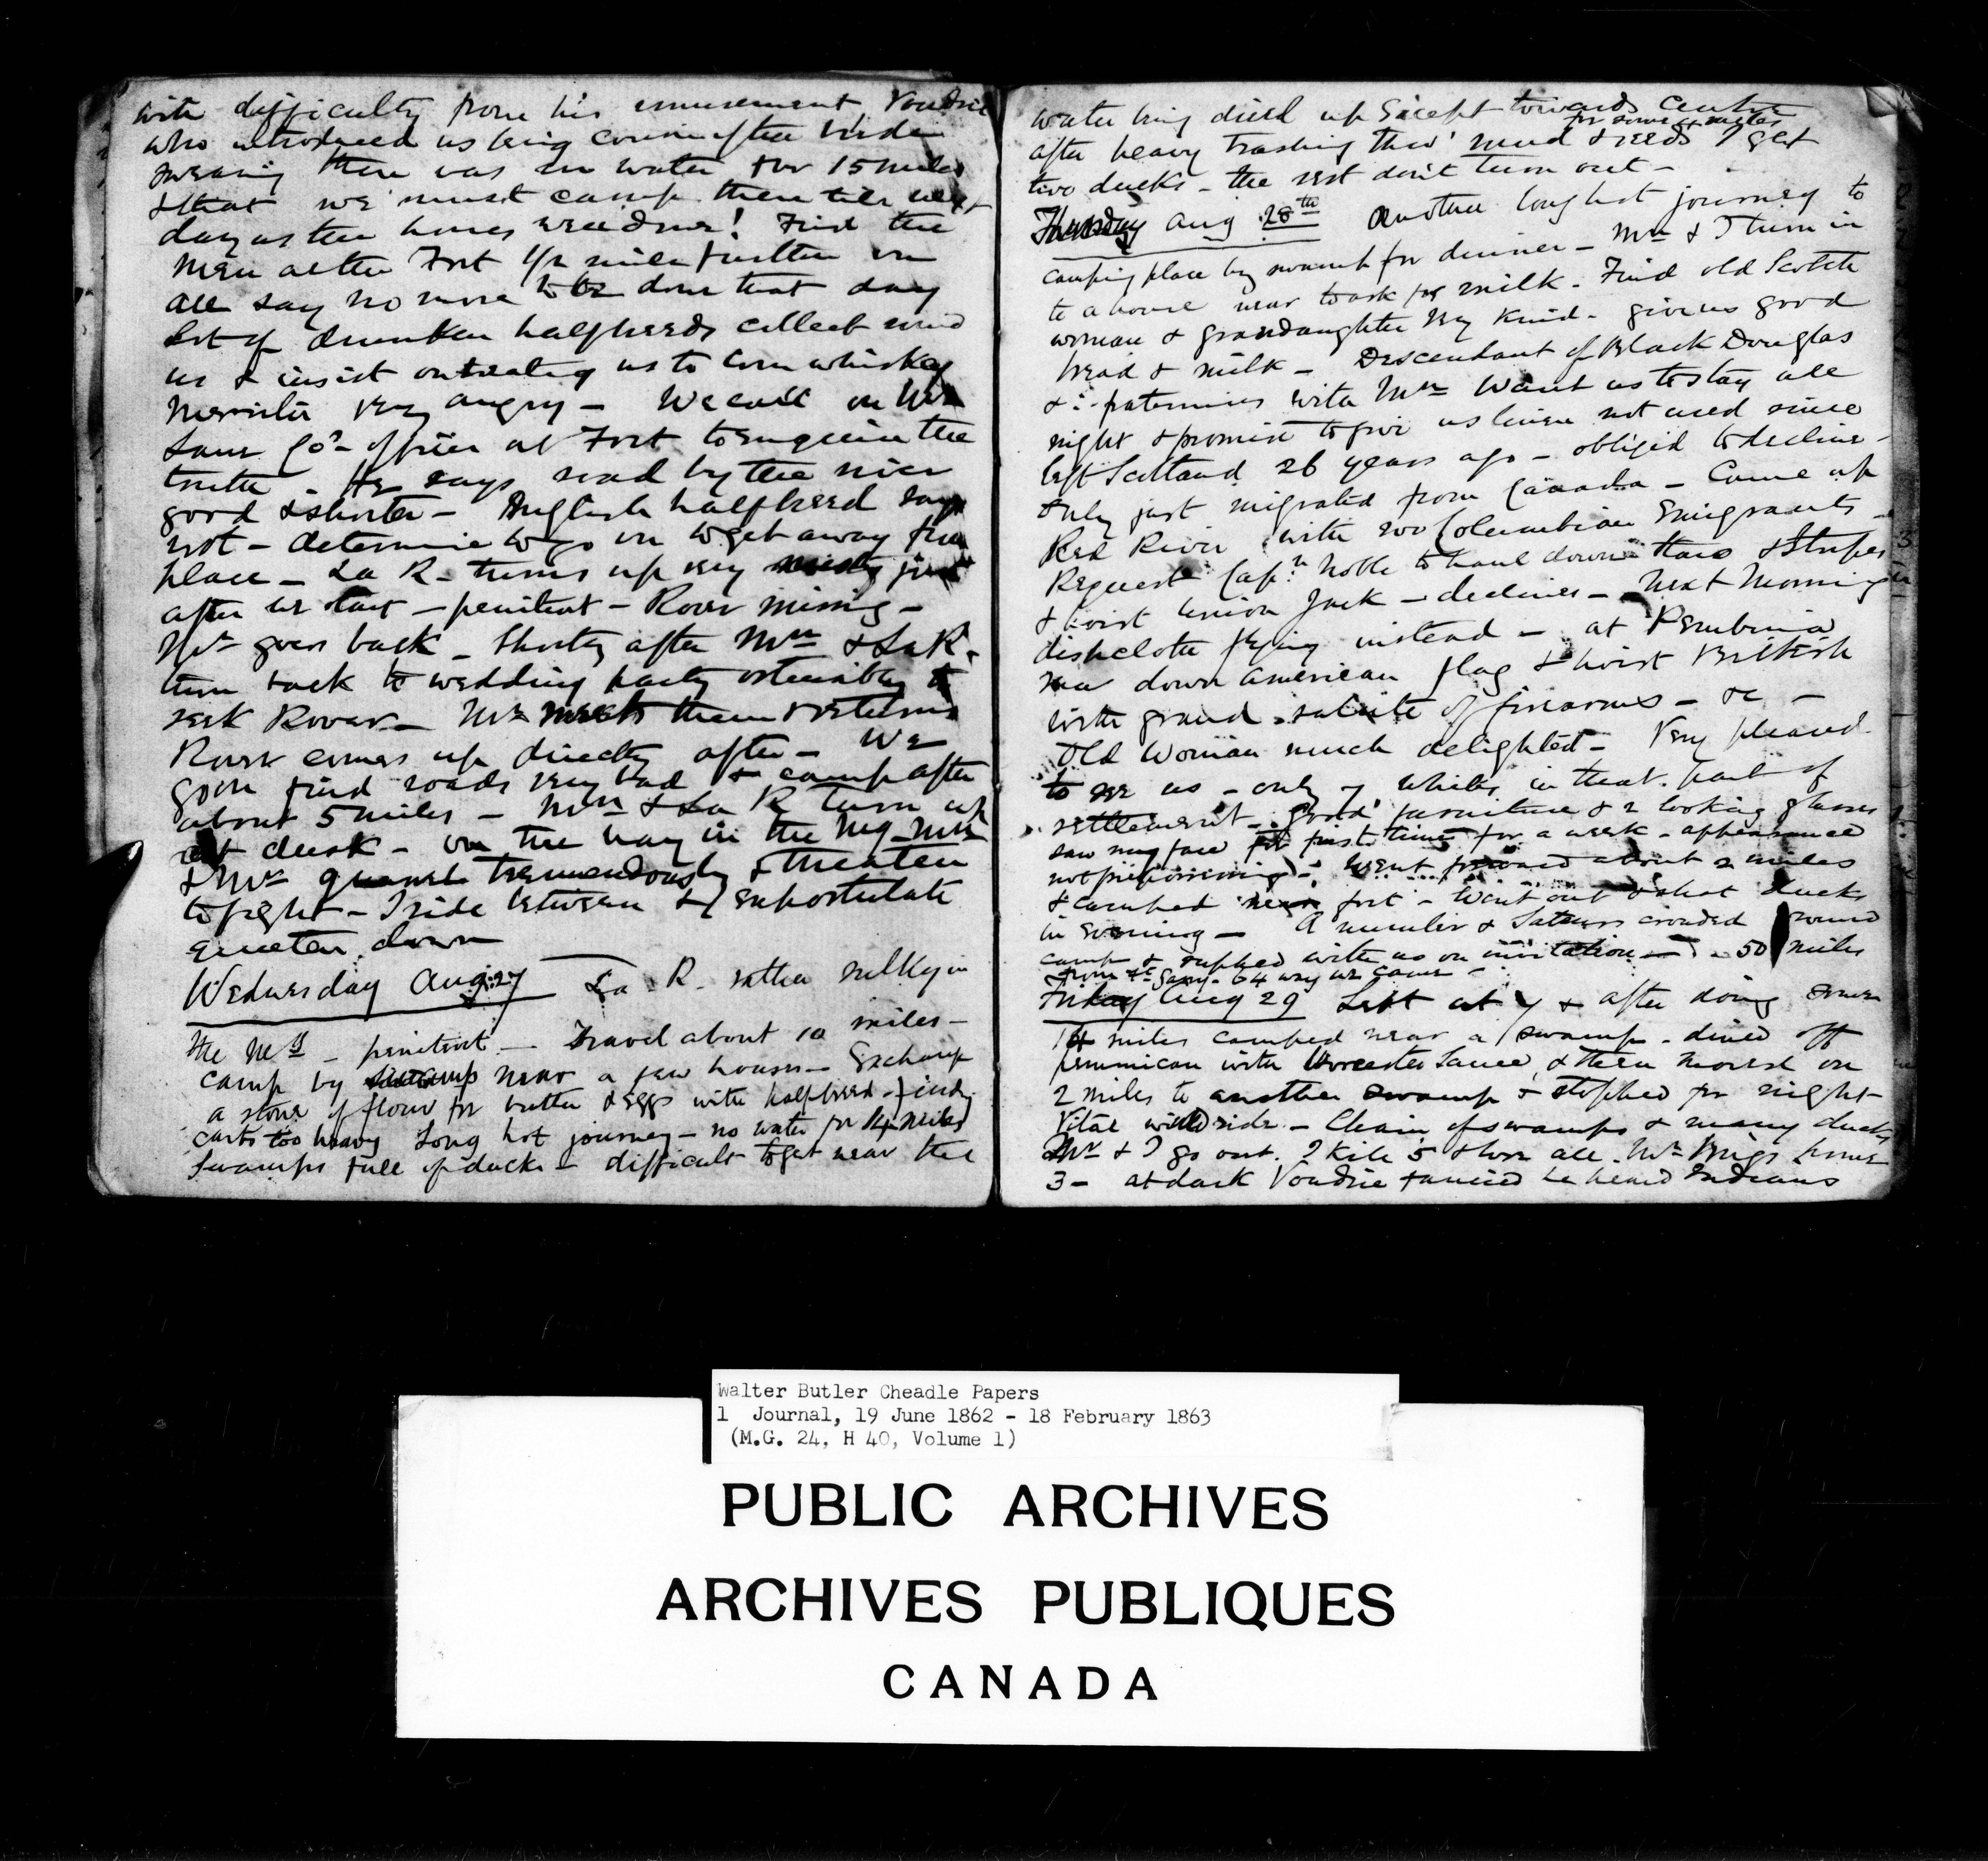 with difficulty from his amusement Voudrie
who introduced us being cousin after bride
swearing there was no water for 15 miles
& that we must camp there till next
day as the horses were done! Find the
Men at the Fort 1/2 mile further on
all say no more to be done that day
Lot of drunken halfbreeds collect round
us & insist on treating us to corn whiskey
Messiter very angry – We call on
same Co's officer at Fort to enquire the
truth – He says road by the river
good & shorter – English halfbreed says
not – determine to go on to get away from
place – La R – turns up very just
after we start – penitent – Rover missing –
Mr goes back – Shortly after Mn & La R.
turn back to wedding party ostensibly to
seek Rover – Mr meets them & returns
Rover comes up directly after – We
go on find roads very bad & camp after
about 5 miles – Mn & La R turn up
at dusk – on the way in the Mg Mn
& Mr quarrel tremendously & threaten
to fight – I ride between & expostulate
quieten down
Wednesday Aug: 27 La R – rather sulky in
the Mg – penitent – Travel about 10 miles –
camp by swamp near a few houses – Exchange
a stone of flour for butter & eggs with halfbreed – find
carts too heavy Long hot journey – no water for 14 miles
Swamps full of ducks – difficult to get near the
water being dried up Except towards Centre
for some miles
after heavy trashing thro' mud & reeds I get
two ducks – the rest don't turn out –
Thursday Aug 28th Another long hot journey to
camping place by swamp for dinner – Mr & I turn in
to a house near to ask for milk – Find old Scotch
woman & grandaughter very kind – give us good
bread & milk – Descendant of Black Douglas
& fraternises with Mn Want us to stay all
night & promise to give us linen not used since
left Scotland 26 years ago – obliged to decline –
Only just migrated from Canada – Came up
Red River with 200 Columbian Emigrants –
Request Capn Noble to haul down Stars & Stripes
& hoist Union Jack – declines – Next Morning
dishcloth flying instead – at Pembina
down American flag & hoist British
with grand salute of firearms – &c –
Old Woman much delighted – Very pleased
to see us – only whites in that part of
settlement – good furniture & 2 looking glasses
saw my face for first time for a week – appearance
not prepossessing – Went forward about 2 miles
& camped near fort – Went out & shot ducks
in evening – A number of Sauteurs crowded round
camp & supped with us on invitation – 50 miles
from Ft Garry – 64 way we came –
Friday Aug 29 Left at 7 & after doing some
14 miles camped near a swamp – dined off
pemmican with Worcester Sauce, & then moved on
2 miles to another swamp & stopped for night –
Vital – Chain of swamps & many ducks
Mr & I go out. I kill 5 & lose all. Mr Brigs home
3 – at dark Voudrie fancied he heard Indians
Walter Butler Cheadle Papers
1 Journal, 19 June 1862 - 18 February 1863
(M.G. 24, H 40, Volume 1)
PUBLIC ARCHIVES
ARCHIVES PUBLIQUES
CANADA